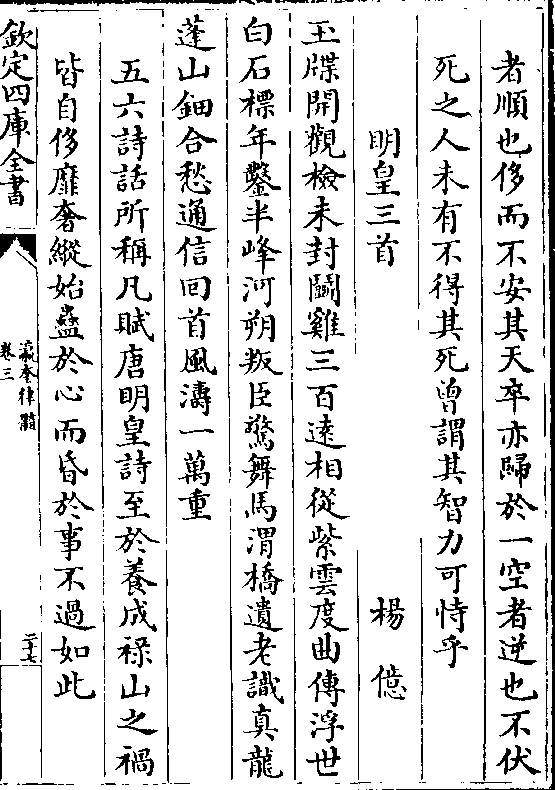 者順也侈而不安其天卒亦歸於一空者逆也不伏
死之人未有不得其死曾謂其智力可恃乎
明皇三首 楊億
玉牒開觀檢未封鬭雞三百逺相從紫雲度曲傳浮世
白石標年鑿半峰河朔叛臣驚舞馬渭橋遺老識真龍
蓬山鈿合愁通信回首風濤一萬重
五六詩話所稱凡賦唐明皇詩至於養成禄山之禍
皆自侈靡奢縱始蠱於心而昏於事不過如此
欽定四庫全書
瀛奎律髓
卷三
二十七